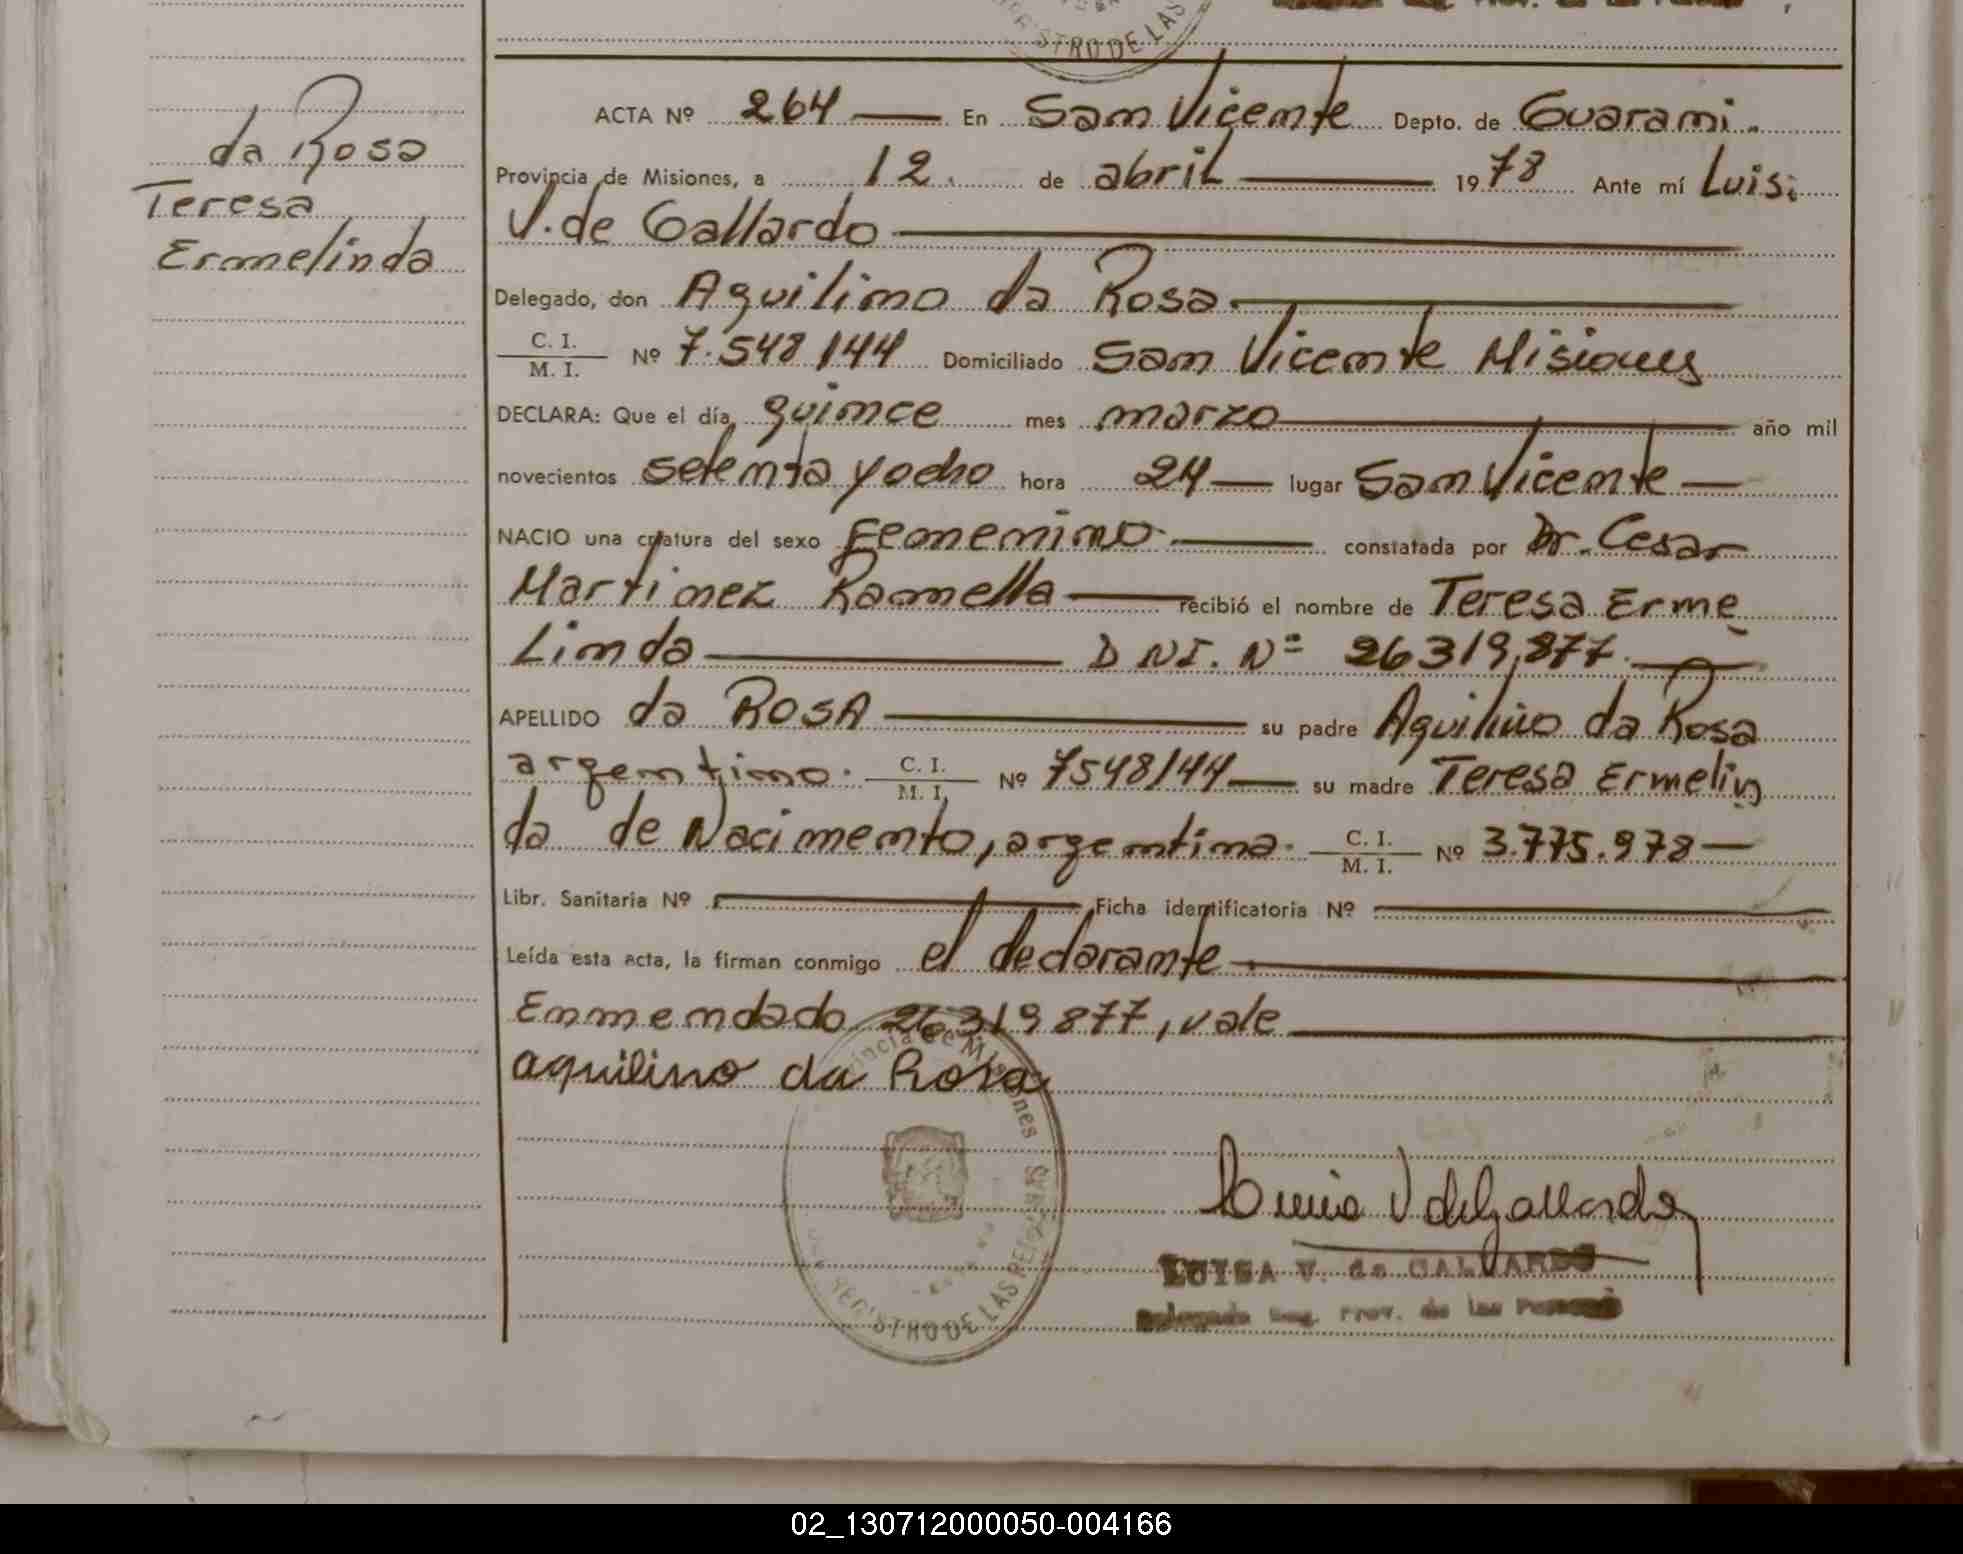 STRO DE LAS
da Rosa
Teresa
Ermelinda
ACTA Nº 264 — En San Vicente Depto. de Guarani.
Provincia de Misiones, a 12. de abril — 1978 Ante mí Luisa
V. de Gallardo —
Delegado, don Aquilino da Rosa. —
C. I.
M. I. Nº 7.548144 Domiciliado San Vicente Misiones
DECLARA: Que el día quince mes marzo — año mil
novecientos setenta y ocho hora 24 — lugar San Vicente —
NACIO una criatura del sexo Femenino. — constatada por Dr. Cesar
Martinez Ramella — recibió el nombre de Teresa Erme
Linda — DNI. Nº 26319,877. —
APELLIDO da ROSA — su padre Aquilino da Rosa
argentino. C. I.
M. I. Nº 7548144 — su madre Teresa Ermelin
da de Nacimento, argentina. C. I.
M. I. Nº 3.775.978 —
Libr. Sanitaria Nº — Ficha identificatoria Nº —
Leída esta acta, la firman conmigo el declarante —
Enmendado 26319877, vale —
aquilino da Rosa
Provincia de Misiones
REGISTRO DE LAS PERSONAS
Luisa V de Gallardo
LUISA V. de GALLARDO
Delegada Reg. Prov. de las Personas
02_130712000050-004166